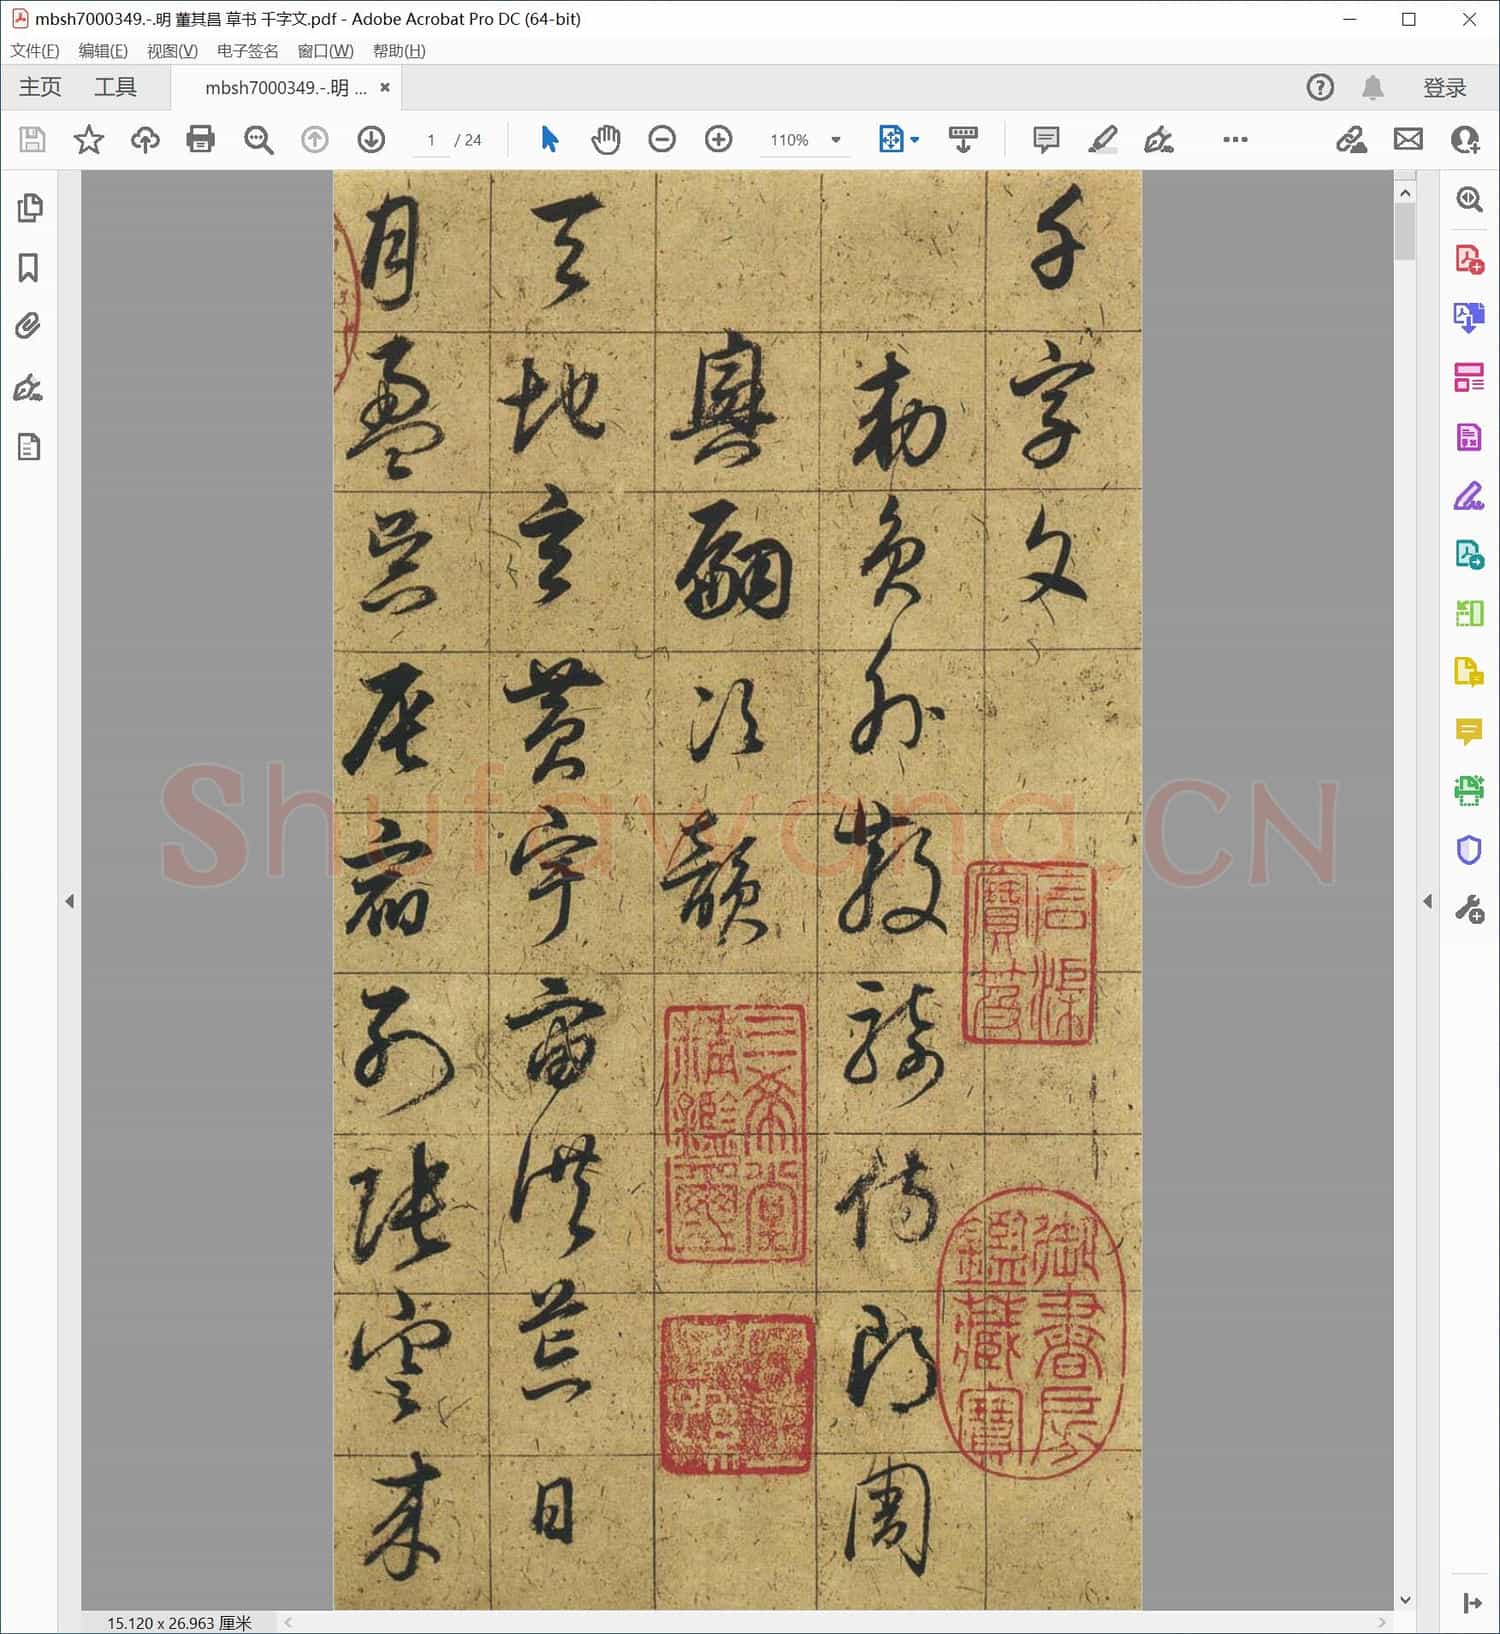 mbsh7000349.-.明 董其昌 草书 千字文.pdf - Adobe Acrobat Pro DC (64-bit)
文件(F) 编辑(E) 视图(V) 电子签名 窗口(W) 帮助(H)
主页 工具 mbsh7000349.-.明 ... × 登录
1 / 24 110%
千字文
敕员外散骑侍郎周
兴嗣次韵
天地玄黄宇宙洪荒日
月盈昃辰宿列张寒来
Shufawang.CN
三希堂
精鑑璽
御書房
鑑藏寶
15.120 x 26.963 厘米